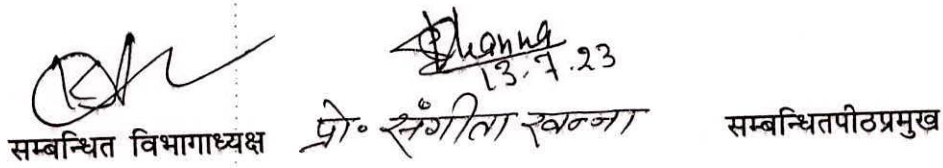 Khanna
13.7.23
सम्बन्धित विभागाध्यक्ष प्रो. संगीता खन्ना सम्बन्धितपीठप्रमुख